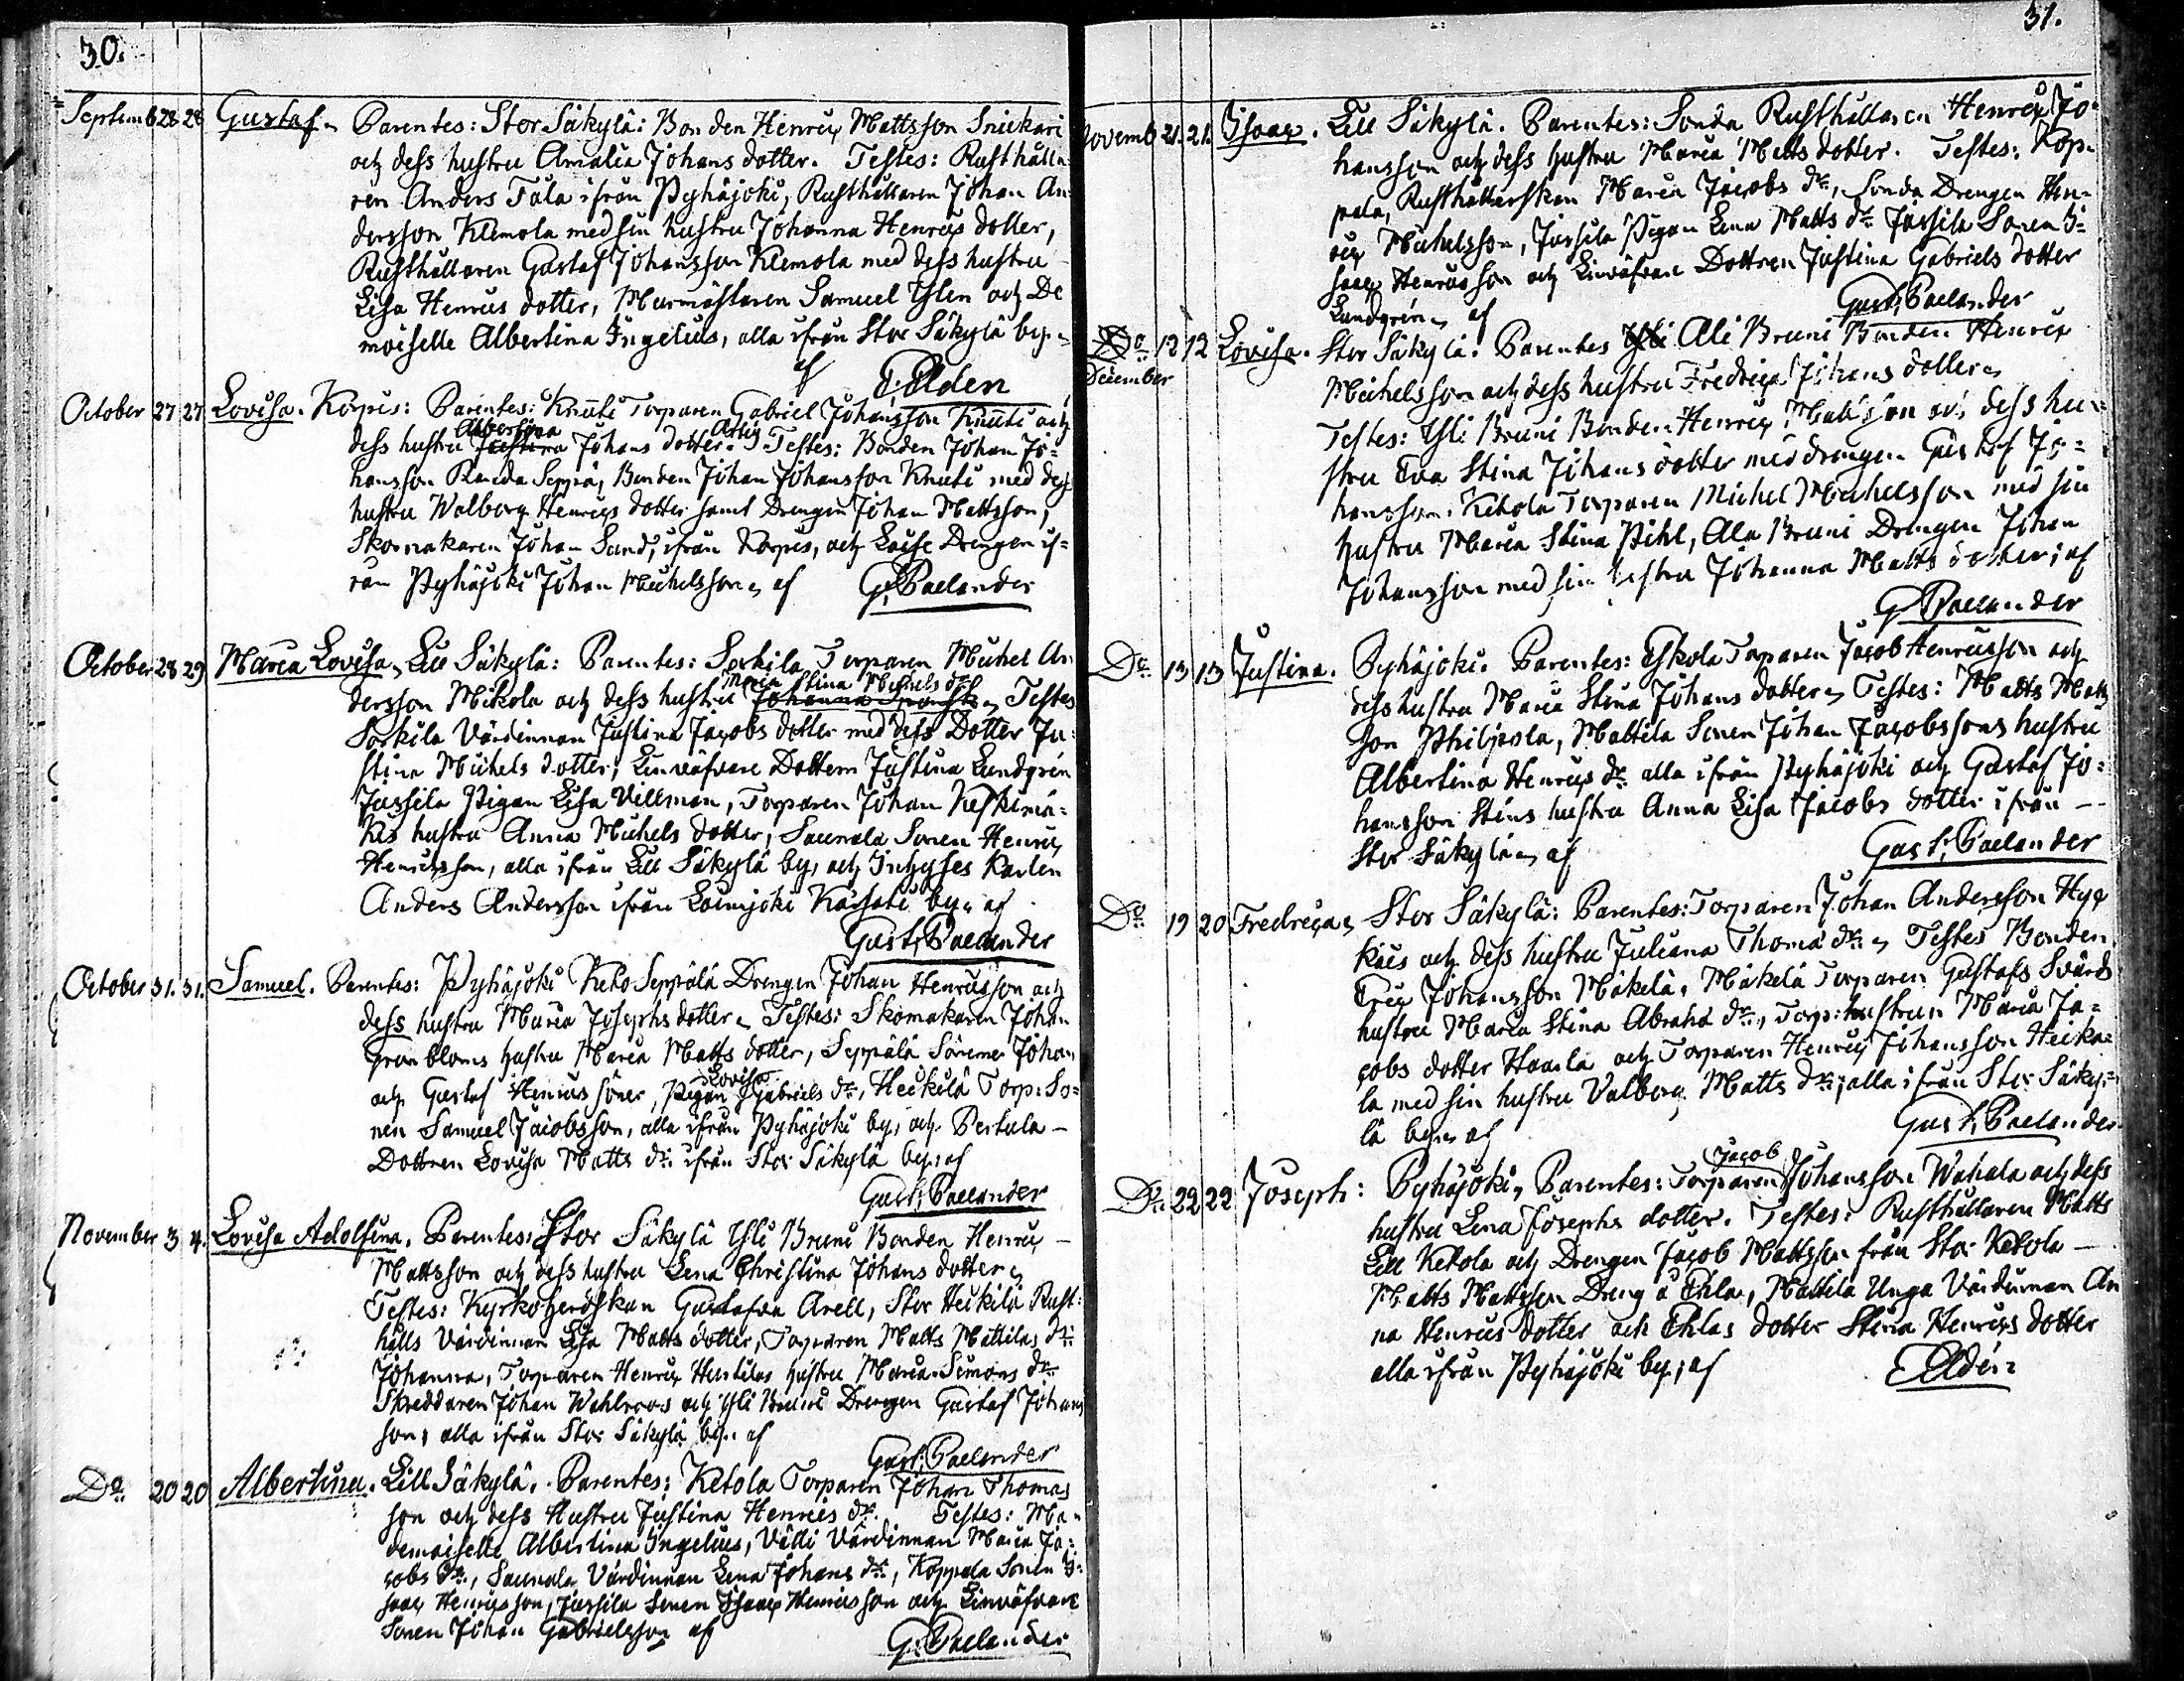 30.
Septemb 28 28 Gustaf. Parentes: Stor Säkylä: Bonden Henric Mattsson Snickari
och dess hustru Amalia Johans dotter. Testes: Rusthålla=
ren Anders Tala ifrån Pyhäjoki, Rusthållaren Johan An=
dersson Klemola med sin hustru Johanna Henrics dotter,
Rusthållaren Gustaf Johansson Klemola med dess hustru
Lisa Henrics dotter, Murmästaren Samuel Ylen och De
moiselle Albertina Ingelius, alla ifrån Stor Säkylä by
af Elden
October 27 27 Lovisa. Korpis: Parentes: Knuti Torparen Gabriel Johansson Knuti och
Albertina
dess hustru Justina Johans dotter. Testes: Bonden Johan Jo=
hansson Seppä, Bonden Johan Johansson Knuti med dess
hustru Walborg Henrics dotter samt Drengen Johan Mattsson,
Skomakaren Johan Sund, ifrån Korpis, och Drengen if=
rån Pyhäjoki Johan Michelsson, af G. Paelander
October 28 29 Maria Lovisa, Lill Säkylä: Parentes: Sorkila Torparen Michel An
Maria Stina Michels dr
dersson Mikola och dess hustru Johanna Testes
Sorkila Värdinnan Justina Jacobs dotter med dess Dotter Ju=
stina Michels dotter, Linväfvare Dottern Justina Lundgrén
Jussila Pigan Lisa Villman, Torparen Johan Keskimä=
kis hustru Anna Michels dotter, Saunala Sonen Henric
Henricsson, alla ifrån Lill Säkylä by, och Inhyses Karlen
Anders Andersson ifrån Loimjoki by, af
Gust. Paelander
October 31. 31. Samuel. Parentes: Pyhäjoki Keto Seppälä Drengen Johan Henricsson och
dess hustru Maria Josephs dotter, Testes: Skomakaren Johan
Granbloms hustru Maria Matts dotter, Seppälä Sönerne Johan
och Gustaf Henrics söner, Pigan Lovisa Gabriels dr, Heikilä Torp. So=
nen Samuel Jacobsson, alla ifrån Pyhäjoki by, och Pertula
Dottren Lovisa Matts dr ifrån Stor Säkylä by; af
Gust. Paelander
November 3 4. Lovisa Adolfina. Parentes: Stor Säkylä Yli Bruni Bonden Henric
Mattsson och dess hustru Lena Christina Johans dotter,
Testes: Kyrkoherdskan Gustafva Arell, Stor Heikilä Rust=
hålls Värdinnan Lisa Matts dotter, Torparen Matts Mattilas dr
Johanna, Torparen Henric hustru Maria Simons dr
Skreddaren Johan Wahlroos och Yli Bruni Drengen Gustaf Johans
son, alla ifrån Stor Säkylä by, af
Gust. Paelander
Do 20 20 Albertina. Lill Säkylä. Parentes: Ketola Torparen Johan Thomas
son och dess Hustru Justina Henrics dr. Testes: Ma=
demoiselle Albertina Ingelius, Välli Värdinnan Maria Ja=
cobs dr, Saunala Värdinnan Lena Johans dr, Koppala Sonen I=
saac Henricsson, Jussila Sonen Isaac Henricsson och Linväfvare
Sonen Johan Gabrielsson af G. Paelander
31.
Novemb 21. 21. Isaac. Lill Säkylä. Parentes: Sonda Rusthållaren Henric Jo=
hansson och dess hustru Maria Matts dotter. Testes: Kop=
pala, Rusthållarskan Maria Jacobs dr, Sonda Drengen Hen=
ric Michelsson, Jussila Pigan Lena Matts dr Jussila Sonen I=
saac Henricsson och Linväfvare Dottren Justina Gabriels dotter
Lundgrén, af Gust. Paelander
Do 12 12 Lovisa. Stor Säkylä. Parentes Yli Ali Bruni Bonden Henric
December
Michelsson och dess hustru Fredrica Johans dotter,
Testes: Yli Bruni Bonden Henric Mattsson och dess hu=
stru Eva Stina Johans dotter med drengen Gustaf Jo=
hansson. Ketola Torparen Michel Michelsson med sin
hustru Maria Stina Pihl, Ala Bruni Drengen Johan
Johansson med sin hustru Johanna Matts dotter; af
G. Paelander
Do 13 13 Justina. Pyhäjoki. Parentes: Eskola Torparen Jacob Henricsson och
dess hustru Maria Stina Johans dotter, Testes: Matts Matts
son Philpola, Mattila Sonen Johan Jacobssons hustru
Albertina Henrics dr alla ifrån Pyhäjoki och Gustaf Jo=
hansson Stens hustru Anna Lisa Jacobs dotter ifrån
Stor Säkylä, af Gust. Paelander
Do 19 20 Fredrica, Stor Säkylä: Parentes: Torparen Johan Andersson Hyr
käis och dess hustru Juliana Thoma dr, Testes Bonden
Eric Johansson Mäkelä, Mäkelä Torparen Gustafs Svärds
hustru Maria Stina Abrahå dr, Torp: hustrun Maria Ja=
cobs dotter Haarla och Torparen Henric Johansson Heika=
la med sin hustru Valborg Matts dr; alla ifrån Stor Säky=
lä by, af Gust. Paelander
Do 22 22 Joseph: Pyhäjoki, Parentes: Torparen Jacob Johansson Wahala och dess
hustru Lena Josephs dotter. Testes: Rusthållaren Matts
Lill Ketola och Drengen Jacob Mattsson från Stor Ketola
Matts Mattsson Dreng å Ehla, Mattila Unga Värdinnan An
na Henrics dotter och Ehlas dotter Stina Henrics dotter
alla ifrån Pyhäjoki by; af Eldén